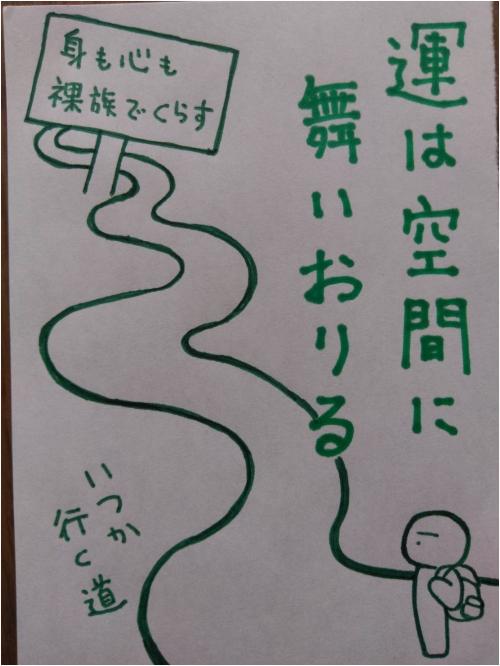 運は空間に
舞いおりる
身も心も
裸族でくらす
いつか
行く道